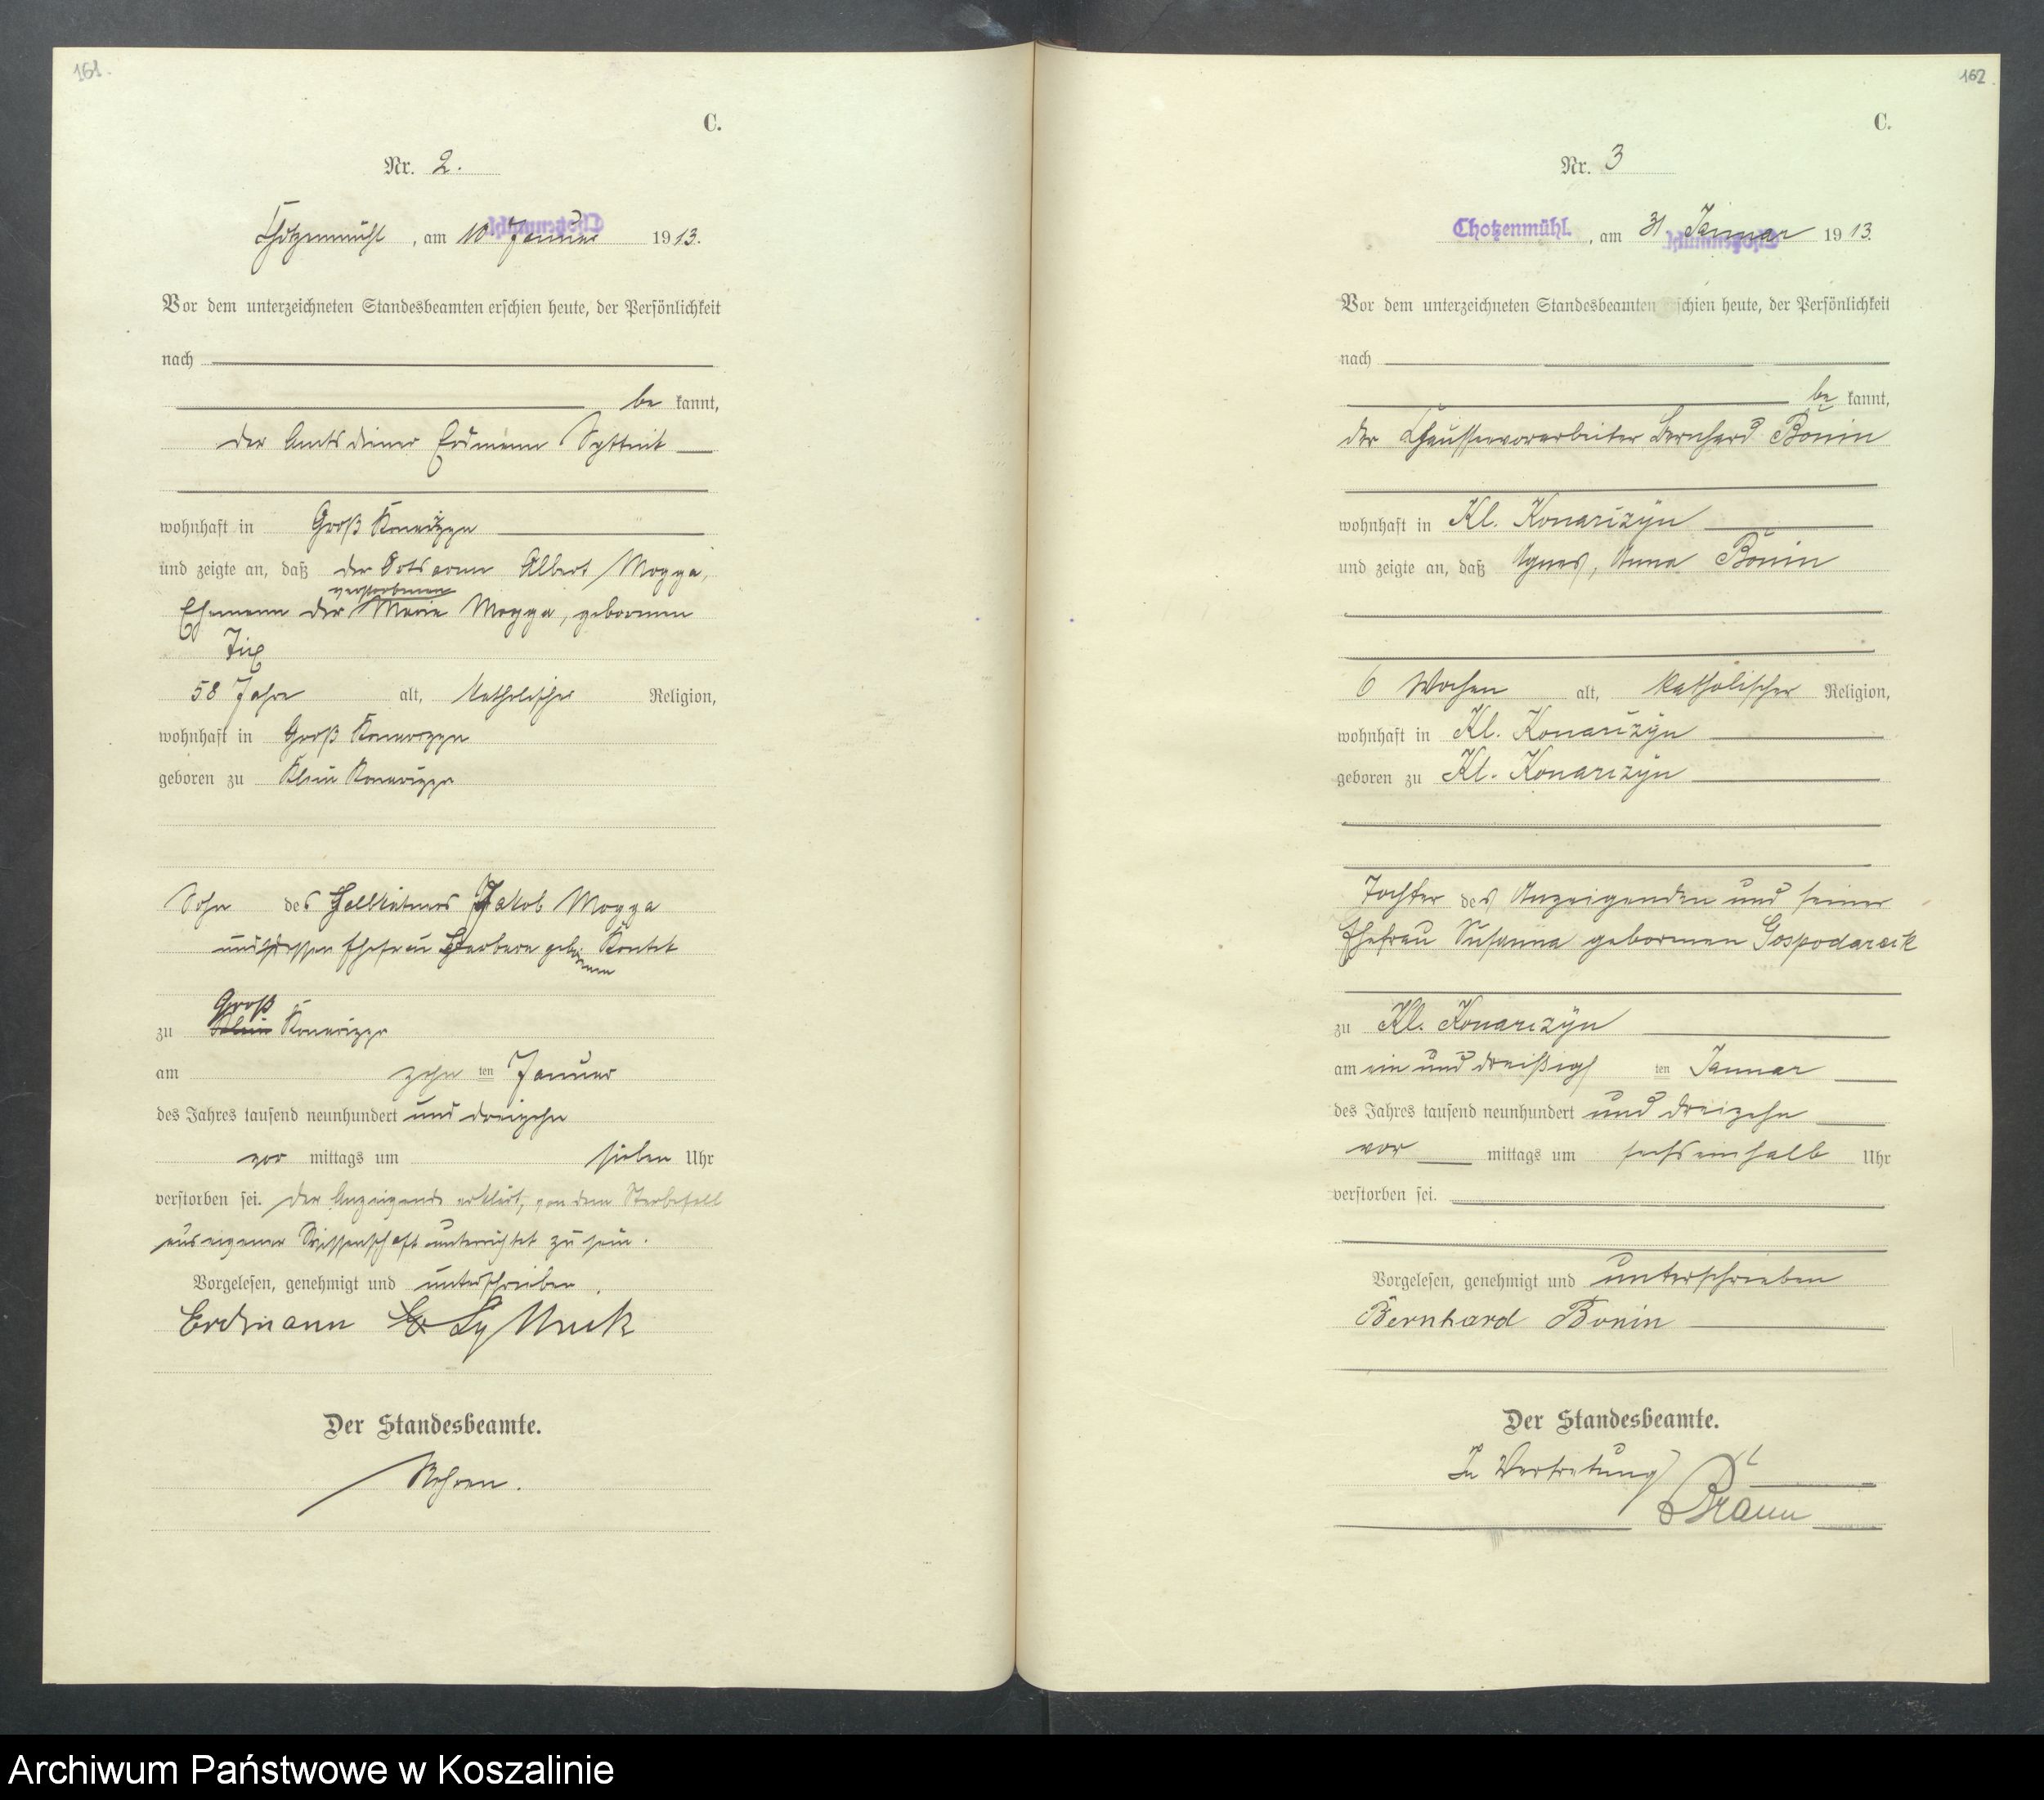 161.
C.
Nr. 2.
Chotzenmühl, am 10 Januar 1913.
Vor dem unterzeichneten Standesbeamten erschien heute, der Persönlichkeit
nach
be kannt,
der Amtsdiener Erdmann
wohnhaft in Groß Konarizyn
und zeigte an, daß der Ortsarme Albert Mogga,
verstorbenen
Ehemann der Marie Mogga, geborenen
58 Jahre alt, katholischer Religion,
wohnhaft in Groß Konarzyn
geboren zu Klein Konarizyn
Sohn des Halbkätners Jakob Mogga
und dessen Ehefrau Barbara geborenen
Groß
zu Klein Konarizyn
am zehn ten Januar
des Jahres tausend neunhundert und dreizehn
vor mittags um sieben Uhr
verstorben sei. Der Anzeigende erklärt, von dem Sterbefall
aus eigener Wissenschaft unterrichtet zu sein.
Vorgelesen, genehmigt und unterschrieben.
Erdmann
Der Standesbeamte.
162
C.
Nr. 3
Chotzenmühl. , am 31 Januar 1913.
Vor dem unterzeichneten Standesbeamten erschien heute, der Persönlichkeit
nach
be kannt,
der Chausseevorarbeiter Bernhard Bonin
wohnhaft in Kl. Konarizyn
und zeigte an, daß Agnes, Anna Bonin
6 Wochen alt, katholischer Religion,
wohnhaft in Kl. Konarizyn
geboren zu Kl. Konarizyn
Tochter des Anzeigenden und seiner
Ehefrau Susanna geborenen Gospodarek
zu Kl. Konarizyn
am ein und dreißigs ten Januar
des Jahres tausend neunhundert und dreizehn
vor mittags um sechseinhalb Uhr
verstorben sei.
Vorgelesen, genehmigt und unterschrieben
Bernhard Bonin
Der Standesbeamte.
In Vertretung
Braun
Archiwum Państwowe w Koszalinie